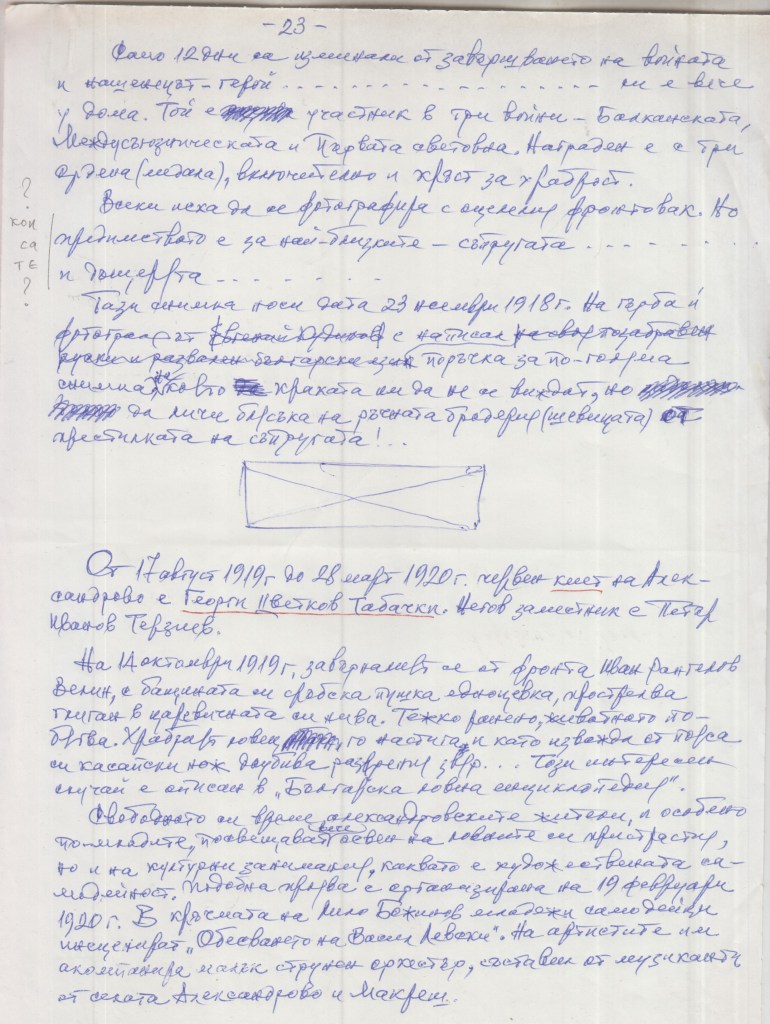 - 23 -
Само 12 дни са изминали от завършването на войната
и нашенецът-герой . . . . . . . . . . . . . . . . . . ни е вече
у дома. Той е участник в три войни – Балканската,
Междусъюзническата и Първата световна. Награден е с три
ордена (медала), включително и кръст за храброст.
Всеки иска да се фотографира с оцелелия фронтовак. Но
предимството е за най-близките – съпругата . . . . . . .
и дъщерята . . . . . . . .
?
кои
са
те
?
Тази снимка носи дата 23 ноември 1918 г. На гърба й
фотографът с написал
руски и развален български език поръчка за по-голяма
снимка, на която краката им да не се виждат, но
да личи блясъка на ръчната бродерия (шевицата) от
престилката на съпругата! . .
От 17 август 1919 г до 28 март 1920 г. червен кмет на Алек-
сандрово е Георги Цветков Табачки. Негов заместник е Петър
Иванов Терзиев.
На 14 октомври 1919 г, завърналият се от фронта Иван Рангелов
Велин, с бащината си сръбска пушка едноцевка, прострелва
глиган в царевичната си нива. Тежко ранено, животното по-
бягва. Храбрият ловец го настига, и като изважда от пояса
си касапски нож доубива разярения звяр. . . Този интересен
случай е описан в „Българска ловна енциклопедия".
Свободното си време александровските жители, и особено
по-младите, посвещават освен на ловните си пристрастия,
но и на културни занимания, каквато е художествената са-
модейност. Подобна проява е организирана на 19 февруари
1920 г. В кръчмата на Лило Божинов младежи самодейци
инсценират „Обесването на Васил Левски". На артистите им
акомпанира малък струнен оркестър, съставен от музиканти
от селата Александрово и Макреш.